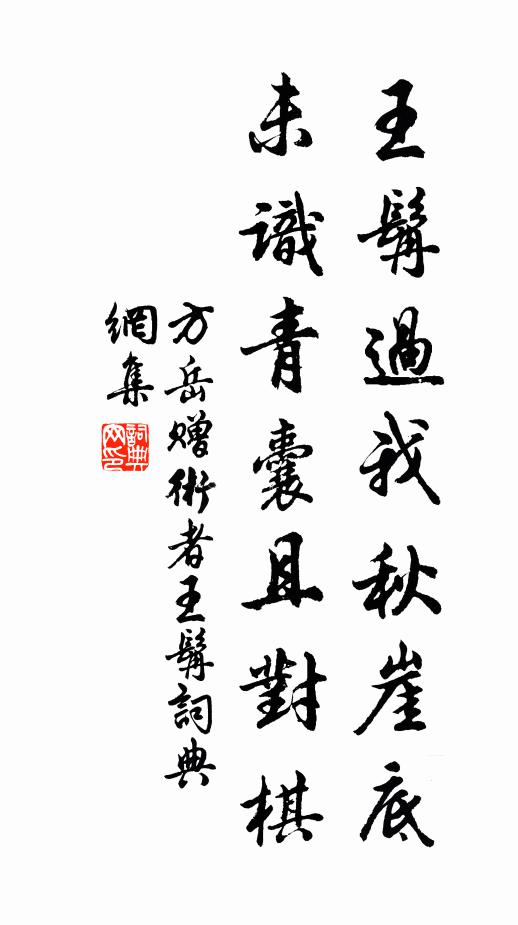 王髯過我秋崖底
未識青囊且對棋
方岳贈術者王髯詞典
網集
詞典網印